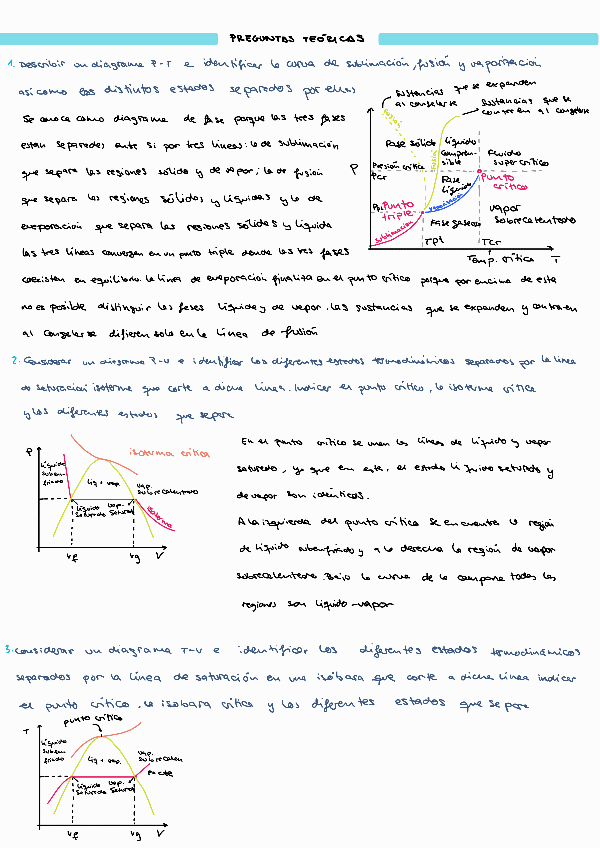 PREGUNTAS TEÓRICAS
1. Describir un diagrama P-T e identificar la curva de sublimación, fusión y vaporización
así como los distintos estados separados por ellas
Se conoce como diagrama de fase porque las tres fases
están separadas ante si por tres líneas: la de sublimación
que separa las regiones sólida y de vapor; la de fusión
que separa las regiones sólidas y líquidas y la de
evaporación que separa las regiones sólidas y líquida
las tres líneas convergen en un punto triple donde las tres fases
coexisten en equilibrio. la línea de evaporación finaliza en el punto crítico porque por encima de este
no es posible distinguir las fases líquida y de vapor. las sustancias que se expanden y contraen
al congelarse difieren solo en la línea de fusión
Sustancias que se expanden
al congelarse
Sustancias que se
contraen al congelarse
fusión
Fase sólido
líquido
Compren-
sible
Fluido
supercrítico
P
Presión crítica
Pcr
Fase
líquida
Punto
crítico
Ppt
Punto
triple
vaporización
vapor
sobrecalentado
sublimación
Fase gaseosa
Tpt
Tcr
Temp. crítica
T
2. Considerar un diagrama P-v e identificar los diferentes estados termodinámicos separados por la línea
de saturación isoterma que corte a dicha línea. Indicar el punto crítico, la isoterma crítica
y los diferentes estados que separa
P
isoterma crítica
líquido
suben-
friado
líq + vap
vap.
sobrecalentado
líquido
saturado
vap.
saturad
isoterma
vf
vg
V
En el punto crítico se unen las líneas de líquido y vapor
saturado, ya que em este, el estado líquido saturado y
de vapor son idénticos.
A la izquierda del punto crítico se encuentra la región
de líquido subenfriado y a la derecha la región de vapor
sobrecalentado. Bajo la curva de la campana todas las
regiones son líquido-vapor
3. Considerar un diagrama T-v e identificar los diferentes estados termodinámicos
separados por la línea de saturación en una isóbara que corte a dicha línea indicar
el punto crítico, la isobara crítica y los diferentes estados que separa
T
punto crítico
líquido
suben
friado
líq + vap.
vap.
sobrecalen
P=cte
líquido
saturado
vap.
saturad
vf
vg
V